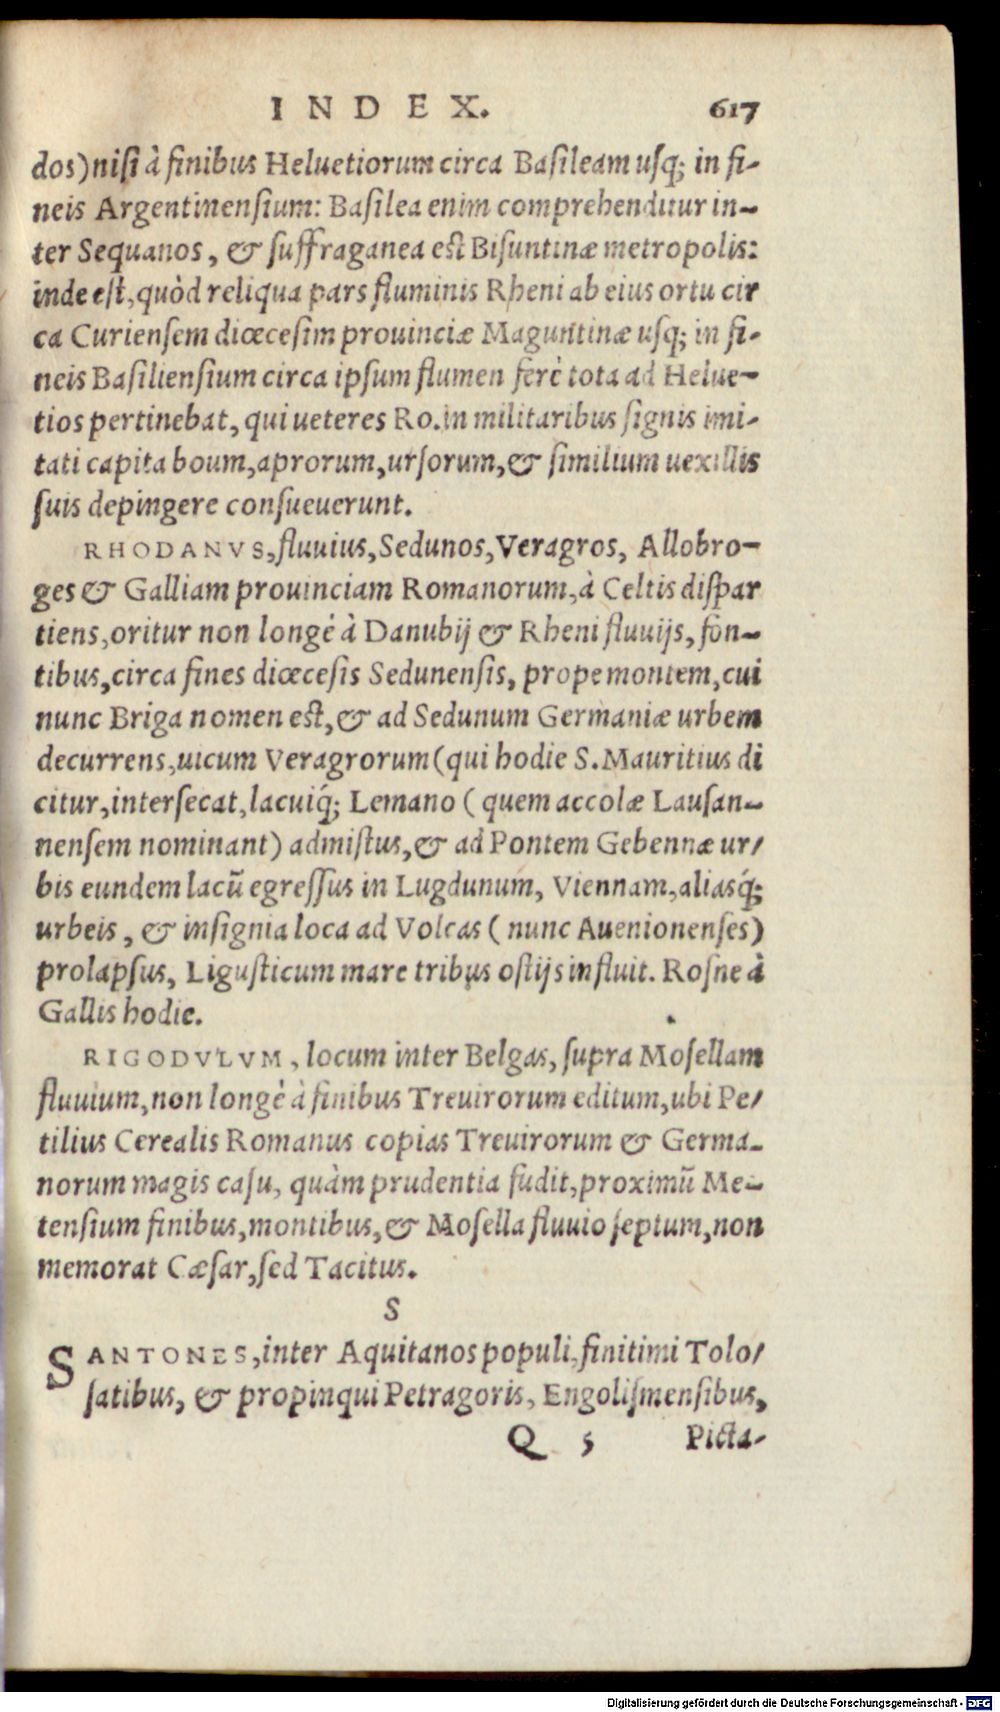 INDEX. 617
dos) nisi à finibus Heluetiorum circa Basileam usq; in fi-
neis Argentinensium: Basilea enim comprehenditur in-
ter Sequanos, & suffraganea est Bisuntinæ metropolis:
inde est, quòd reliqua pars fluminis Rheni ab eius ortu cir
ca Curiensem diœcesim prouinciæ Maguntinæ usq; in fi-
neis Basiliensium circa ipsum flumen ferè tota ad Helue-
tios pertinebat, qui ueteres Ro. in militaribus signis imi-
tati capita boum, aprorum, ursorum, & similium uexillis
suis depingere consueuerunt.
RHODANVS, fluuius, Sedunos, Veragros, Allobro-
ges & Galliam prouinciam Romanorum, à Celtis dispar
tiens, oritur non longè à Danubij & Rheni fluuijs, fon-
tibus, circa fines diœcesis Sedunensis, prope montem, cui
nunc Briga nomen est, & ad Sedunum Germaniæ urbem
decurrens, uicum Veragrorum (qui hodie S. Mauritius di
citur, intersecat, lacuiq́; Lemano ( quem accolæ Lausan-
nensem nominant) admistus, & ad Pontem Gebennæ ur/
bis eundem lacū egressus in Lugdunum, Viennam, aliasq́;
urbeis, & insignia loca ad Volcas ( nunc Auenionenses)
prolapsus, Ligusticum mare tribus ostijs influit. Rosne à
Gallis hodie.
RIGODVLVM, locum inter Belgas, supra Mosellam
fluuium, non longè à finibus Treuirorum editum, ubi Pe/
tilius Cerealis Romanus copias Treuirorum & Germa-
norum magis casu, quàm prudentia fudit, proximū Me-
tensium finibus, montibus, & Mosella fluuio septum, non
memorat Cæsar, sed Tacitus.
S
SANTONES, inter Aquitanos populi, finitimi Tolo/
satibus, & propinqui Petragoris, Engolismensibus,
Q 5 Picta-
Digitalisierung gefördert durch die Deutsche Forschungsgemeinschaft - DFG